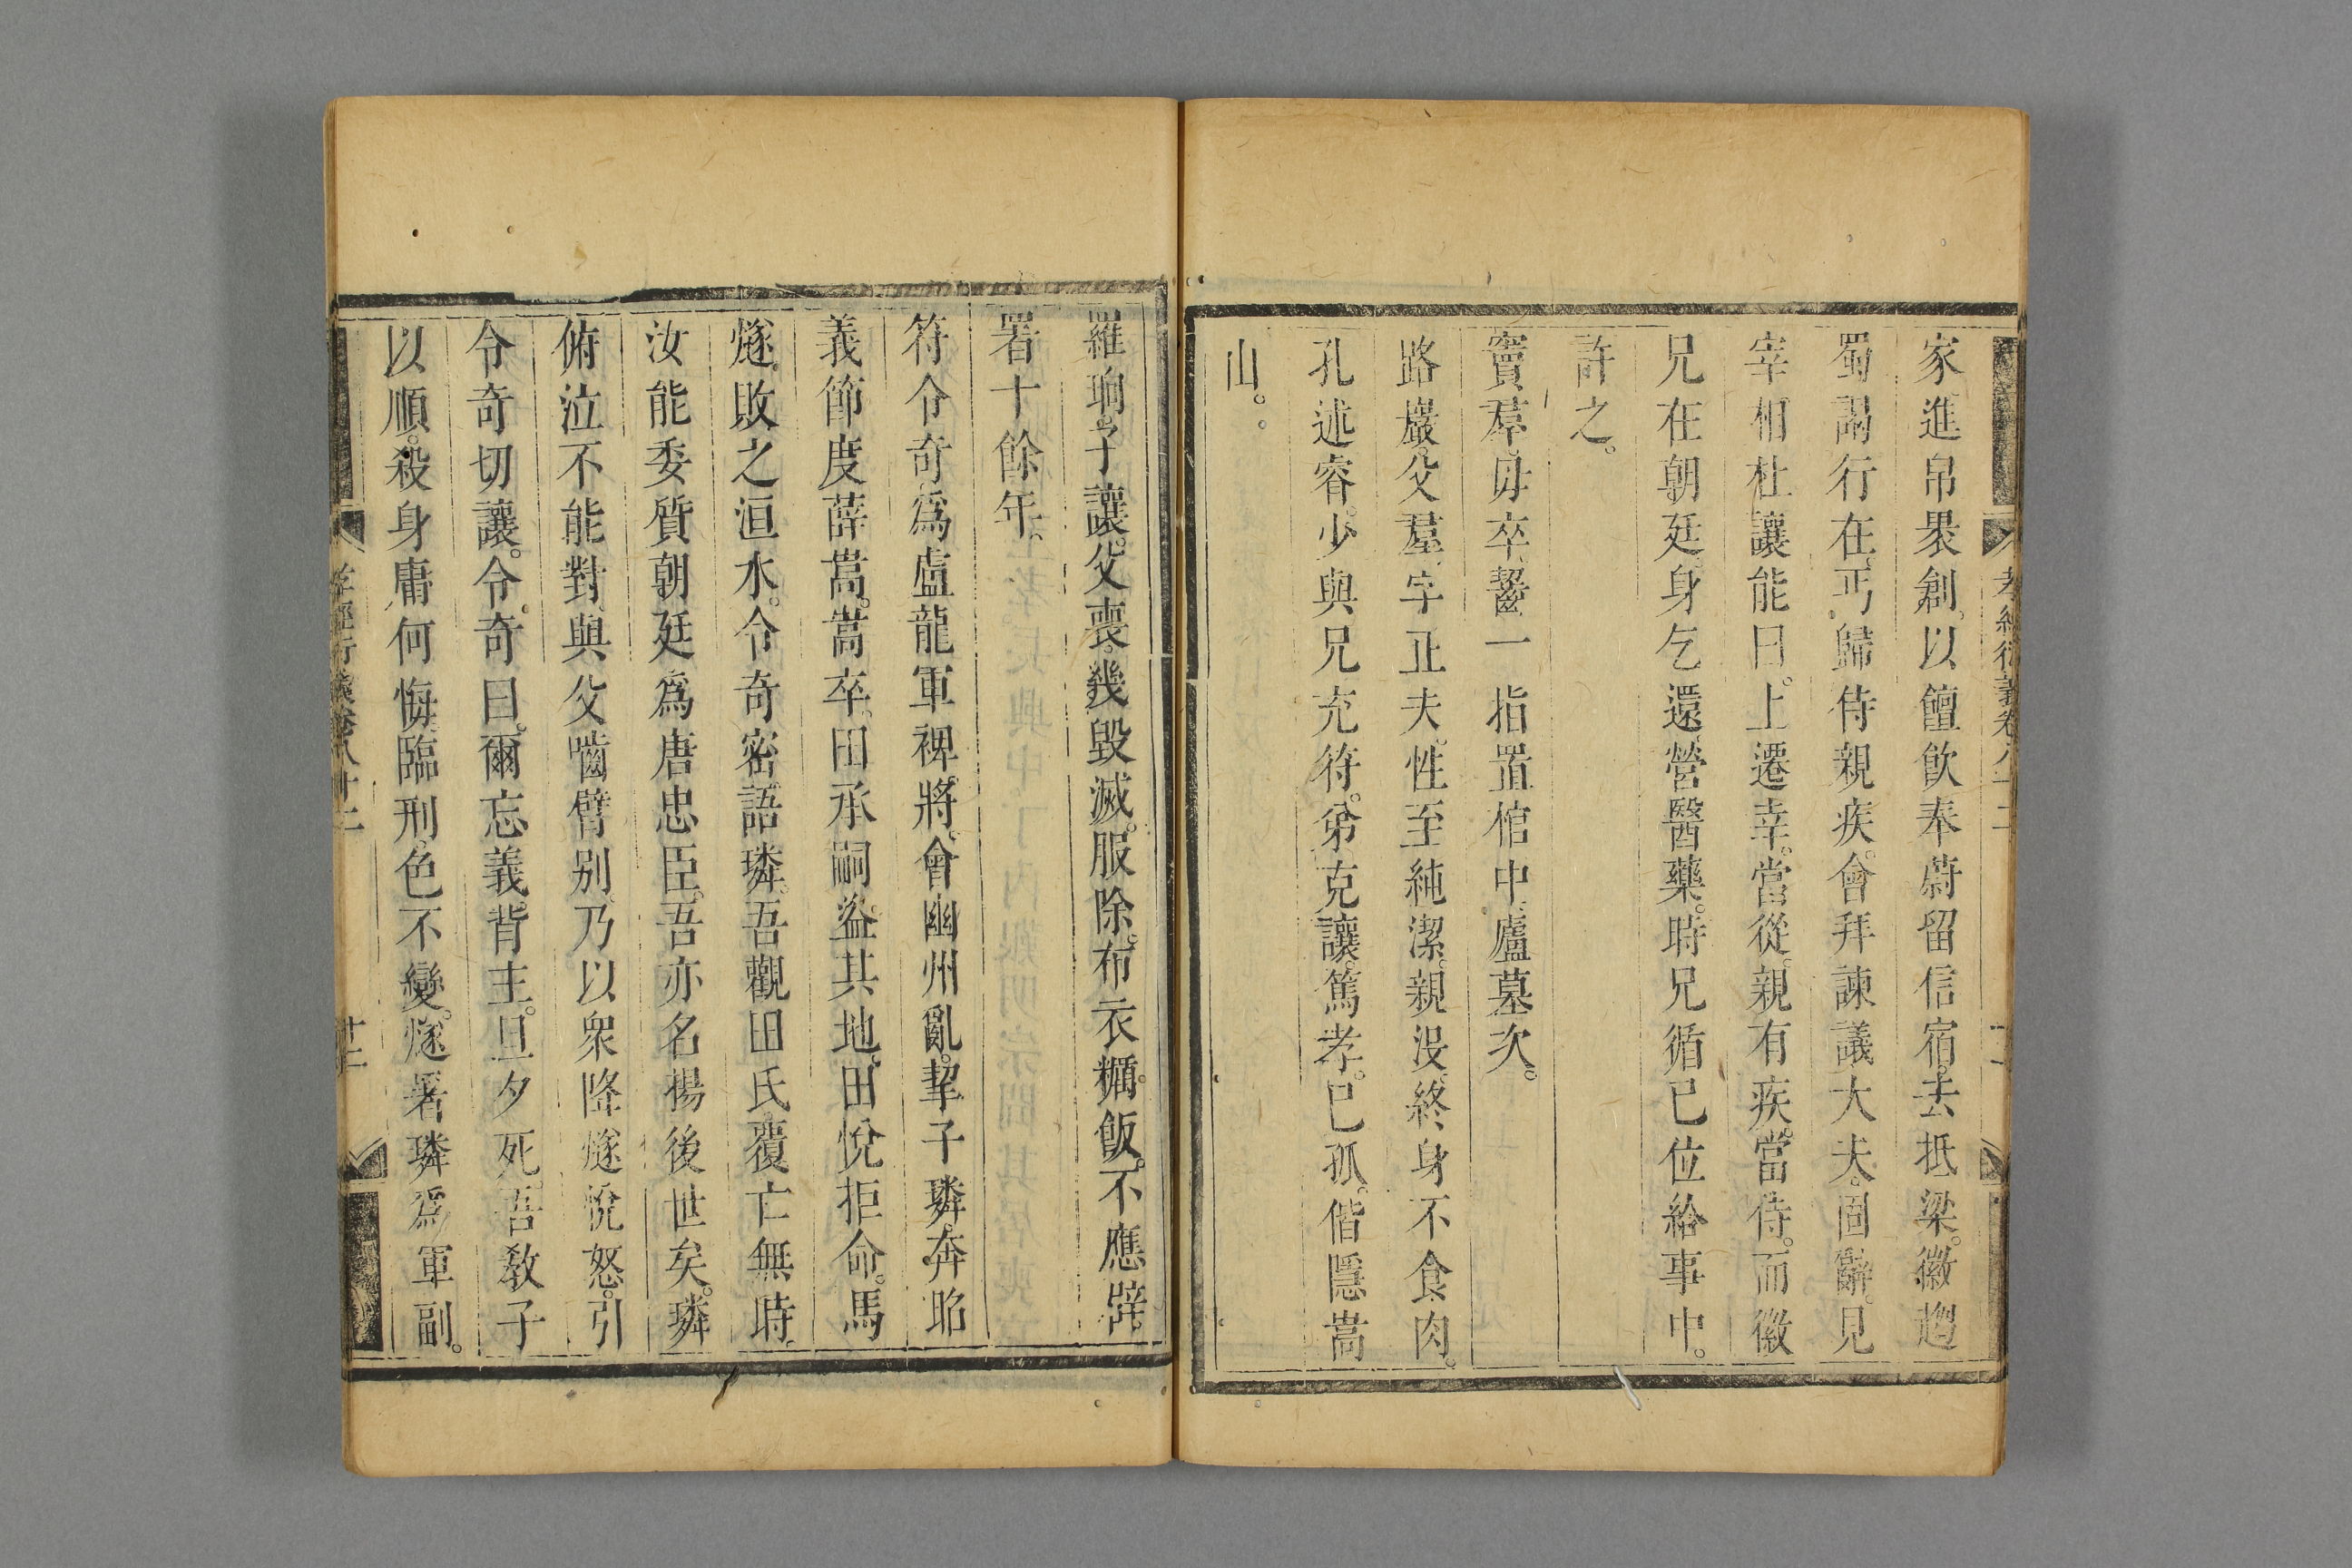 家進帛裹創。以饘飲奉蔚留信宿。去抵梁。徽趨
蜀謁行在。丐歸侍親疾。會拜諫議大夫。固辭。見
宰相杜讓能曰。上遷幸。當從。親有疾。當侍。而徽
兄在朝廷。身乞還營醫藥。時兄循已位給事中。
許之。
竇羣。毋卒。齧一指置棺中。廬墓次。
路巖。父羣。字正夫。性至純潔。親没。終身不食肉。
孔述睿。少與兄充符。弟克讓。篤孝。已孤。偕隱嵩
山。
孝經衍義卷八十二
羅珦。子讓。父喪。幾毀滅。服除。布衣糲飯。不應辟
署十餘年。
符令奇。爲盧龍軍裨將。會幽州亂。挈子璘奔昭
義節度薛嵩。嵩卒。田承嗣盗其地。田悅拒命。馬
燧敗之洹水。令奇密語璘。吾觀田氏覆亡無時。
汝能委質朝廷爲唐忠臣。吾亦名揚後世矣。璘
俯泣不能對。與父嚙臂别。乃以衆降燧。悅怒。引
令奇切讓。令奇曰。爾忘義背主。旦夕死。吾敎子
以順。殺身庸何悔。臨刑色不變。燧署璘爲軍副。
孝經衍義卷八十二
十二